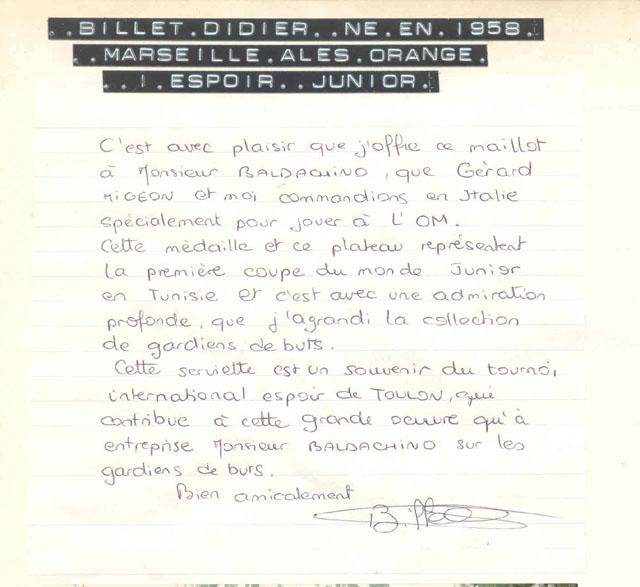 ..BILLET.DIDIER..NE.EN.1958.
..MARSEILLE.ALES.ORANGE.
..I.ESPOIR..JUNIOR.
C'est avec plaisir que j'offre ce maillot
à Monsieur BALDACHINO, que Gérard
MIGEON et moi commandions en Italie
spécialement pour jouer à L'OM.
Cette médaille et ce plateau représentent
la première coupe du monde Junior
en Tunisie et c'est avec une admiration
profonde, que j'agrandi la collection
de gardiens de buts.
Cette serviette est un souvenir du tournoi,
international espoir de TOULON, qui
contribue à cette grande oeuvre qu'à
entreprise Monsieur BALDACHINO sur les
gardiens de burs.
Bien amicalement
Billet